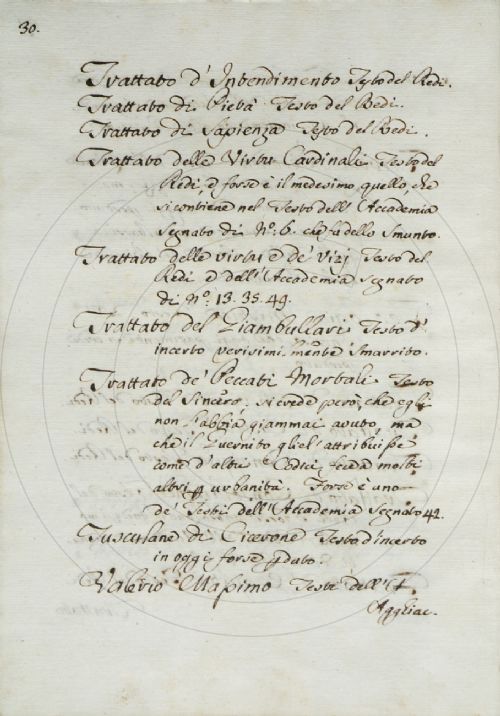 30.
Trattato d'Intendimento Testo del Redi.
Trattato di Pietà Testo del Redi.
Trattato di Sapienza Testo del Redi.
Trattato delle Virtù Cardinali. Testo del
Redi, e forse è il medesimo quello, che
si contiene nel Testo dell'Accademia
segnato di N.º 6. che fu dello Smunto.
Trattato delle virtù e de' Vizj Testo del
Redi e dell'Accademia segnato
di N.º 13. 35. 49.
Trattato del Giambullari Testo d'
incerto verisimilmente smarrito.
Trattato de' Peccati Mortali Testo
del Sincero. si crede però, che egli
non l'abbia giammai avuto, ma
che il Guernito gliel'attribuisse
come d'altri Codici, fece a molti
altri p urbanità. Forse è uno
de' Testi dell'Accademia segnato 42.
Tusculane di Cicerone Testo d'incerto
in oggi forse pduto.
Valerio Massimo Testi dell'
Agghiac.